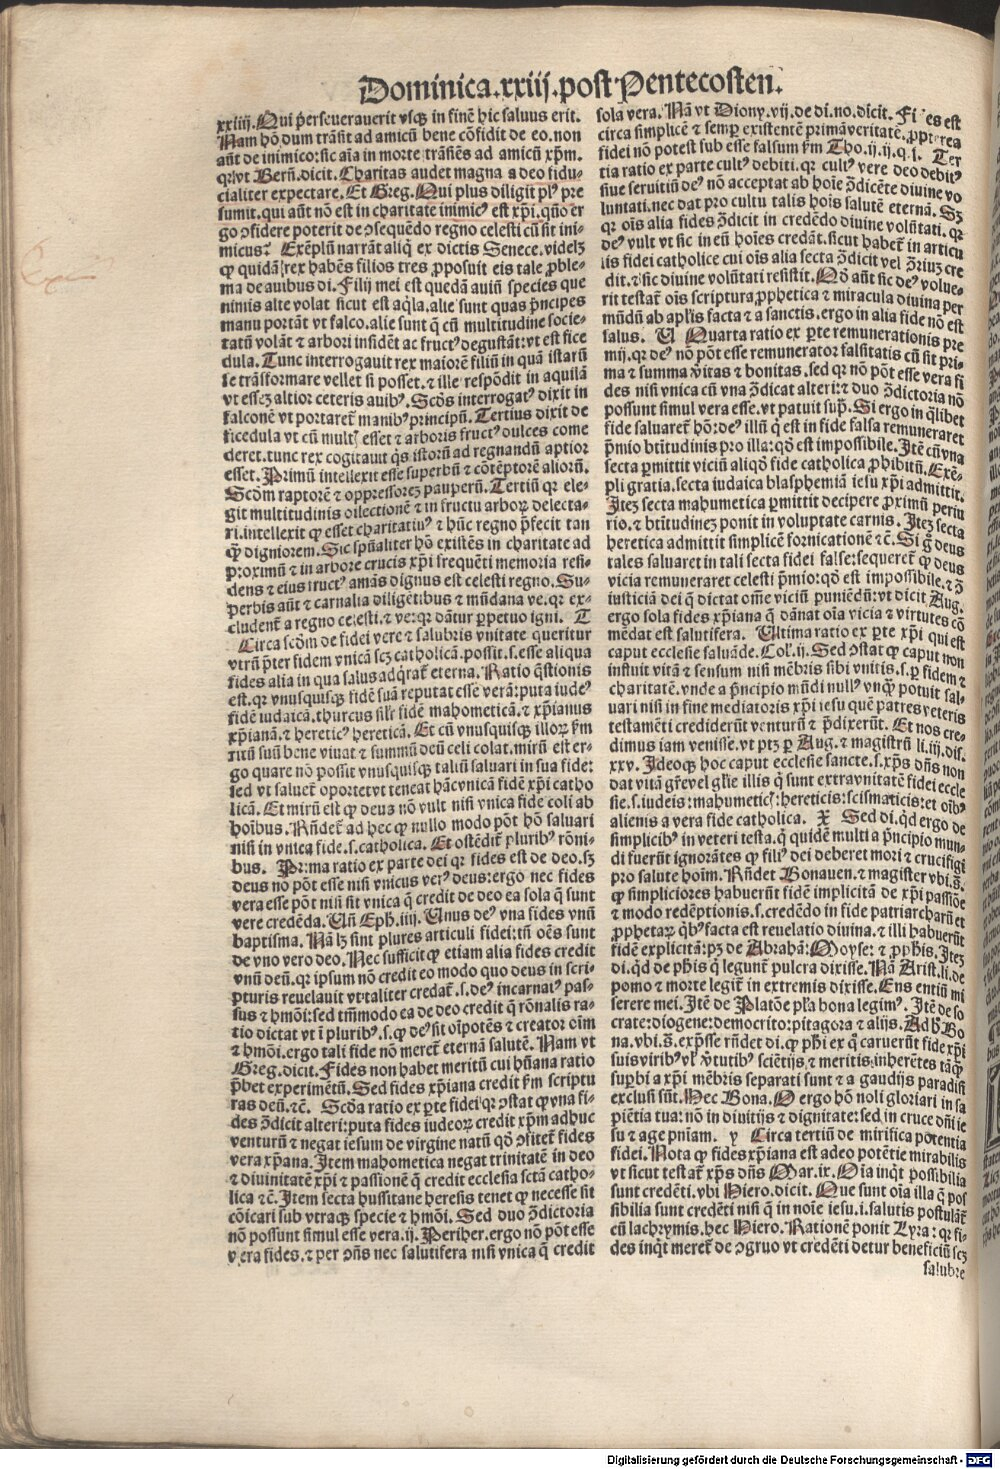 Dominica.xxiij.post Pentecosten.
xxiiij. Qui p̄seuerauerit vsq̢ in finē hic saluus erit.
Nam hō dum trāsit ad amicū bene cōfidit de eo. non
aūt de inimico: sic aīa in morte trāsiēs ad amicū xp̄m.
q2 vt Berñ. dicit. Charitas audet magna a deo fidu-
cialiter expectare. Et Greg. Qui plus diligit plꝰ pre
sumit. qui aūt nō est in charitate inimicꝰ est xp̄i. qūo er
go ↄfidere poterit de ↄsequēdo regno celesti cū sit ini-
micus? Exēplū narrāt aliq̄ ex dictis Senece. videlꝫ
ꝙ quidā rex habēs filios tres ꝓposuit eis tale ꝓble-
ma de auibus di. Filij mei est quedā auiū species que
nimis alte volat sicut est aq̄la. alie sunt quas p̄ncipes
manu portāt vt falco. alie sunt q̄ cū multitudine socie-
tatū volāt ⁊ arbori insidēt ac fructꝰ degustāt: vt est fice
dula. Tunc interrogauit rex maiorē filiū in quā istarū
se trāsformare vellet si posset. ⁊ ille respōdit in aquilā
vt esseꝫ altior ceteris auibꝰ. Scōs interrogatꝰ dixit in
falconē vt portaret̄ manibꝰ principū. Tertius dixit de
ficedula vt cū multꝭ esset ⁊ arboris fructꝰ dulces come
deret. tunc rex cogitauit q̄s istorū ad regnandū aptior
esset. Primū intellexit esse superbū ⁊ cōtēptorē aliorū.
Scōm raptorē ⁊ oppressoreꝫ pauperū. Tertiū qꝛ ele-
git multitudinis dilectionē ⁊ in fructu arboꝝ delecta-
ri. intellexit ꝙ esset charitatiuꝰ ⁊ hūc regno p̄fecit tan
q̄ digniorem. Sic spūaliter hō existēs in charitate ad
proximū ⁊ in arbore crucis xp̄i frequēti memoria resi-
dens ⁊ eius fructꝰ amās dignus est celesti regno. Su-
perbis aūt ⁊ carnalia diligētibus ⁊ mūdana ve. qꝛ ex-
cludent̄ a regno celesti. ⁊ ve: qꝛ dātur ꝑpetuo igni. T
Circa scōm de fidei vere ⁊ salubris vnitate queritur
vtrū p̄ter fidem vnicā scꝫ catholicā. possit. s. esse aliqua
fides alia in qua salus adq̄rat̄ eterna. Ratio q̄stionis
est. qꝛ vnusquisq̢ fidē suā reputat esse verā: puta iudeꝰ
fidē iudaicā. thurcus sil'r fidē mahometicā. ⁊ xp̄ianus
xp̄ianā. ⁊ hereticꝰ hereticā. Et cū vnusquisq̢ illoꝝ fm
ritū suū bene viuat ⁊ summū deū celi colat. mirū est er-
go quare nō possit vnusquisq̢ taliū saluari in sua fide:
sed vt saluet̄ oportet vt teneat hāc vnicā fidē xp̄i catho
licā. Et mirū est ꝙ deus nō vult nisi vnica fide coli ab
hoībus. Rn̄det̄ ad hec ꝙ nullo modo pōt hō saluari
nisi in vnica fide. s. catholica. Et ostēdit̄ pluribꝰ rōni-
bus. Prima ratio ex parte dei qꝛ fides est de deo. sꝫ
deus nō pōt esse nisi vnicus verꝰ deus: ergo nec fides
vera esse pōt nisi sit vnica q̄ credit de deo ea sola q̄ sunt
vere credēda. Uñ Eph. iiij. Unus deꝰ vna fides vnū
baptisma. Nā lꝫ sint plures articuli fidei: tn̄ oēs sunt
de vno vero deo. Nec sufficit ꝙ etiam alia fides credit
vnū deū. qꝛ ipsum nō credit eo modo quo deus in scri-
pturis reuelauit vt taliter credat̄. s. deꝰ incarnatꝰ pas-
sus ⁊ hmōi: sed tm̄modo ea de deo credit q̄ rōnalis ra-
tio dictat vt ī pluribꝰ. s. ꝙ deꝰ sit oīpotēs ⁊ creator oīm
⁊ hmōi. ergo tali fide nō meret̄ eternā salutē. Nam vt
Greg. dicit. Fides non habet meritū cui hūana ratio
p̄bet experimētū. Sed fides xp̄iana credit fm scriptu
ras deū. ⁊c. Scōa ratio ex ꝑte fidei qꝛ ↄstat ꝙ vna fi-
des ↄ̄dicit alteri: puta fides iudeoꝝ credit xp̄m adhuc
venturū ⁊ negat iesum de virgine natū qd̄ ↄfitet̄ fides
vera xp̄ana. Item mahometica negat trinitatē in deo
⁊ diuinitatē xp̄i ⁊ passionē q̄ credit ecclesia sctā catho-
lica ⁊c. Item secta hussitane heresis tenet ꝙ necesse sit
cōicari sub vtraq̢ specie ⁊ hmōi. Sed duo ↄ̄dictoria
nō possunt simul esse vera. ij. Periher. ergo nō pōt esse
vera fides. ⁊ per ↄn̄s nec salutifera nisi vnica q̄ credit
sola vera. Nā vt Diony. vij. de di. no. dicit. Fides est
circa simplicē ⁊ semꝑ existentē primā veritatē. ꝓpterea
fidei nō potest sub esse falsum fm Tho. ij. ij. q. i. Ter
tia ratio ex parte cultꝰ debiti. qꝛ cultꝰ vere deo debitꝰ
siue seruitiū deꝰ nō acceptat ab hoīe ↄ̄dicēte diuine vo
luntati. nec dat pro cultu talis hoīs salutē eternā. Sꝫ
qꝛ oīs alia fides ↄ̄dicit in credēdo diuine volūtati. qꝛ
deꝰ vult vt sic in eū hoīes credāt. sicut habet̄ in articu
lis fidei catholice cui oīs alia secta ↄ̄dicit vel ↄ̄riuꝫ cre
dit. ⁊ sic diuine volūtati resistit. Qd̄ aūt sic deꝰ volue-
rit testat̄ oīs scriptura ꝓphetica ⁊ miracula diuina per
mūdū ab aplīs facta ⁊ a sanctis. ergo in alia fide nō est
salus. U Quarta ratio ex ꝑte remunerationis pre
mij. qꝛ deꝰ nō pōt esse remunerator falsitatis cū sit pri-
ma ⁊ summa v̄itas ⁊ bonitas. sed qꝛ nō pōt esse vera fi
des nisi vnica cū vna ↄ̄dicat alteri: ⁊ duo ↄ̄dictoria nō
possunt simul vera esse. vt patuit sup̄. Si ergo in q̄libet
fide saluaret̄ hō: deꝰ illū q̄ est in fide falsa remuneraret
p̄mio btītudinis pro illa: qd̄ est impossibile. Itē cū vna
secta ꝑmittit viciū aliqd̄ fide catholica ꝓhibitū. Exē-
pli gratia. secta iudaica blasphemiā iesu xp̄i admittit.
Iteꝫ secta mahumetica ꝑmittit decipere ꝓximū periu
rio. ⁊ btītudineꝫ ponit in voluptate carnis. Iteꝫ secta
heretica admittit simplicē fornicationē ⁊c. Si g̊ deus
tales saluaret in tali secta fidei false: sequeret̄ ꝙ deus
vicia remuneraret celesti p̄mio: qd̄ est impossibile. ⁊ ↄ̄
iusticiā dei q̄ dictat om̄e viciū puniēdū: vt dicit Aug.
ergo sola fides xp̄iana q̄ dānat oīa vicia ⁊ virtutes cō
mēdat est salutifera. Ultima ratio ex ꝑte xp̄i qui est
caput ecclesie saluāde. Col'. ij. Sed ↄstat ꝙ caput non
influit vitā ⁊ sensum nisi mēbris sibi vnitis. s. ꝑ fidem ⁊
charitatē. vnde a p̄ncipio mūdi nullꝰ vnq̄ potuit sal-
uari nisi in fine mediatoris xp̄i iesu quē patres veteris
testamēti crediderūt venturū ⁊ p̄dixerūt. Et nos cre-
dimus iam venisse. vt ptꝫ ꝑ Aug. ⁊ magistrū li. iij. dis.
xxv. Ideoq̢ hoc caput ecclesie sancte. s. xp̄s dn̄s non
dat vitā gr̄e vel gl'ie illis q̄ sunt extra vnitatē fidei eccle
sie. s. iudeis: mahumeticꝭ: hereticis: scismaticis: et oībꝰ
alienis a vera fide catholica. X Sed di. qd̄ ergo de
simplicibꝰ in veteri testa. q̄ quidē multi a p̄ncipio mun-
di fuerūt ignorātes ꝙ filiꝰ dei deberet mori ⁊ crucifigi
pro salute hoīm. Rn̄det Bonauen. ⁊ magister vbi. s̄.
ꝙ simpliciores habuerūt fidē implicitā de xp̄i passiōe
⁊ modo redēptionis. s. credēdo in fide patriarcharū et
ꝓphetaꝝ q̄bꝰ facta est reuelatio diuina. ⁊ illi habuerūt
fidē explicitā: pꝫ de Abrahā: Moyse: ⁊ ꝓphīs. Iteꝫ
di. qd̄ de phīs q̄ legunt̄ pulcra dixisse. Nā Arist. li. de
pomo ⁊ morte legit̄ in extremis dixisse. Ens entiū mi
serere mei. Itē de Platōe pl'a bona legimꝰ. Itē de so
crate: diogene: democrito: pitagora ⁊ alijs. Ad h̄ Bo
na. vbi. s̄. exp̄sse rn̄det di. ꝙ phī ex q̄ caruerūt fide xp̄i
suis viribꝰ vl' v̄tutibꝰ sciētijs ⁊ meritis inherētes tāq̄
suꝑbi a xp̄i mēbris separati sunt ⁊ a gaudijs paradisi
exclusi sūt. Hec Bona. O ergo hō noli gloriari in sa
piētia tua: nō in diuitijs ⁊ dignitate: sed in cruce dn̄i ie
su ⁊ age pn̄iam. y Circa tertiū de mirifica potentia
fidei. Nota ꝙ fides xp̄iana est adeo potētie mirabilis
vt sicut testat̄ xp̄s dn̄s Mar. ix. Oīa inq̄t possibilia
sunt credēti. vbi Hiero. dicit. Que sunt oīa illa q̄ pos
sibilia sunt credēti nisi q̄ in noīe iesu. i. salutis postulāt̄
cū lachrymis. hec Hiero. Rationē ponit Lyra: qꝛ fi-
des inq̄t meret̄ de ↄgruo vt credēti detur beneficiū scꝫ
salubre
Digitalisierung gefördert durch die Deutsche Forschungsgemeinschaft - DFG